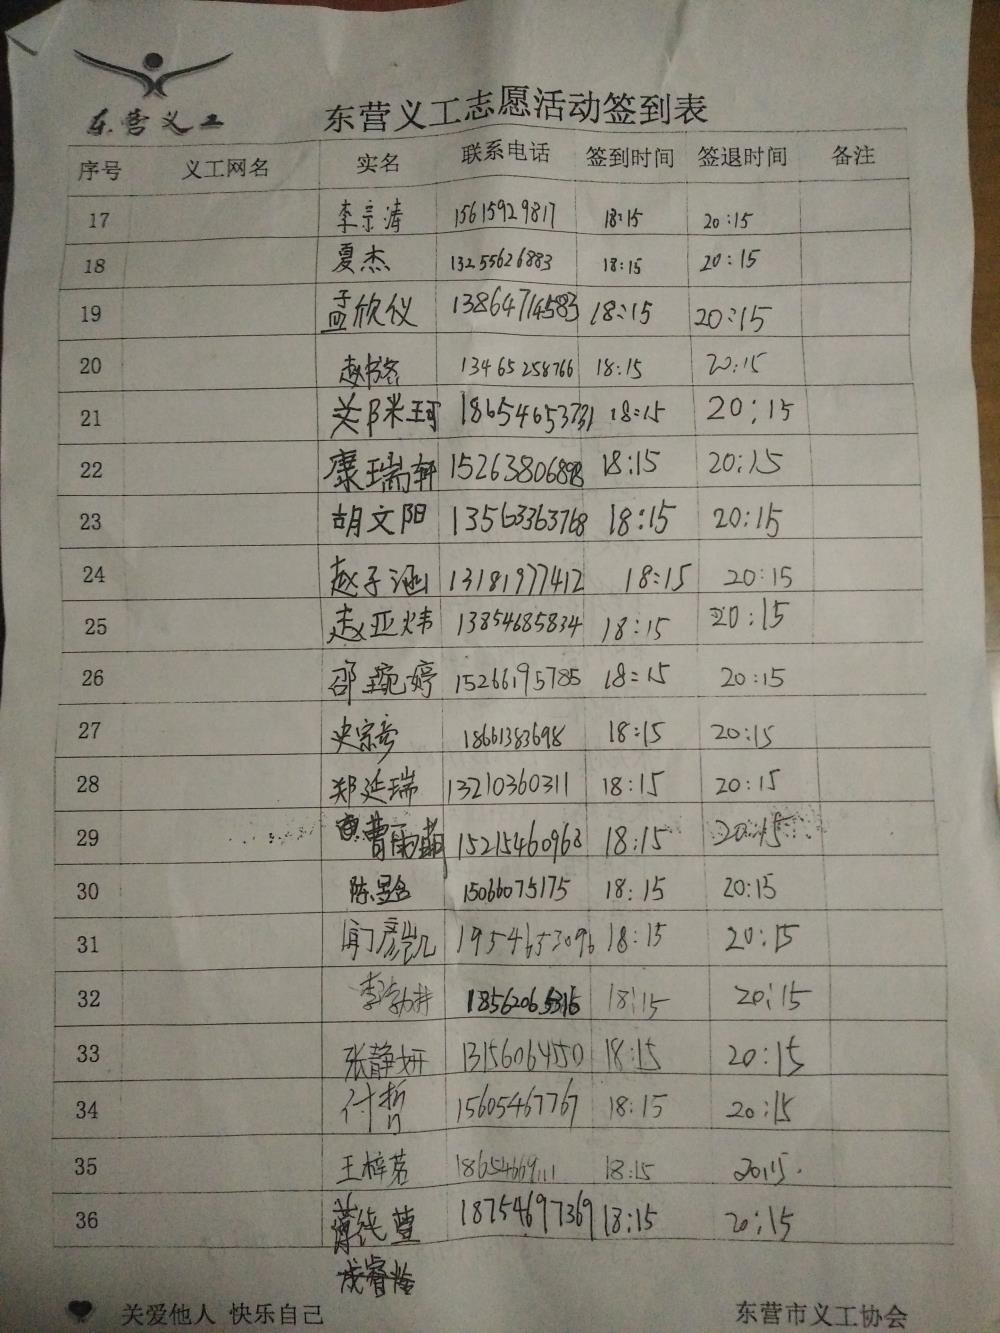 东营义工
东营义工志愿活动签到表
序号 义工网名 实名 联系电话 签到时间 签退时间 备注
17 李宗涛 15615929817 18:15 20:15
18 夏杰 13255626883 18:15 20:15
19 孟欣仪 13864714583 18:15 20:15
20 13465258766 18:15 20:15
21 18654653731 18:15 20:15
22 糜瑞轩 15263806898 18:15 20:15
23 胡文阳 13563363768 18:15 20:15
24 赵子涵 13181977412 18:15 20:15
25 赵亚炜 13854685834 18:15 20:15
26 邵琬婷 15266195785 18:15 20:15
27 18661383698 18:15 20:15
28 郑延瑞 13210360311 18:15 20:15
29 曹雨萌 15215460963 18:15 20:15
30 15066075175 18:15 20:15
31 闫彦凯 19546530 18:15 20:15
32 18:15 20:15
33 张静妍 13156064550 18:15 20:15
34 付哲 15605467767 18:15 20:15
35 王梓茗 18654669111 18:15 2015.
36 薄纯萱 18754697369 18:15 20:15
关爱他人 快乐自己 东营市义工协会